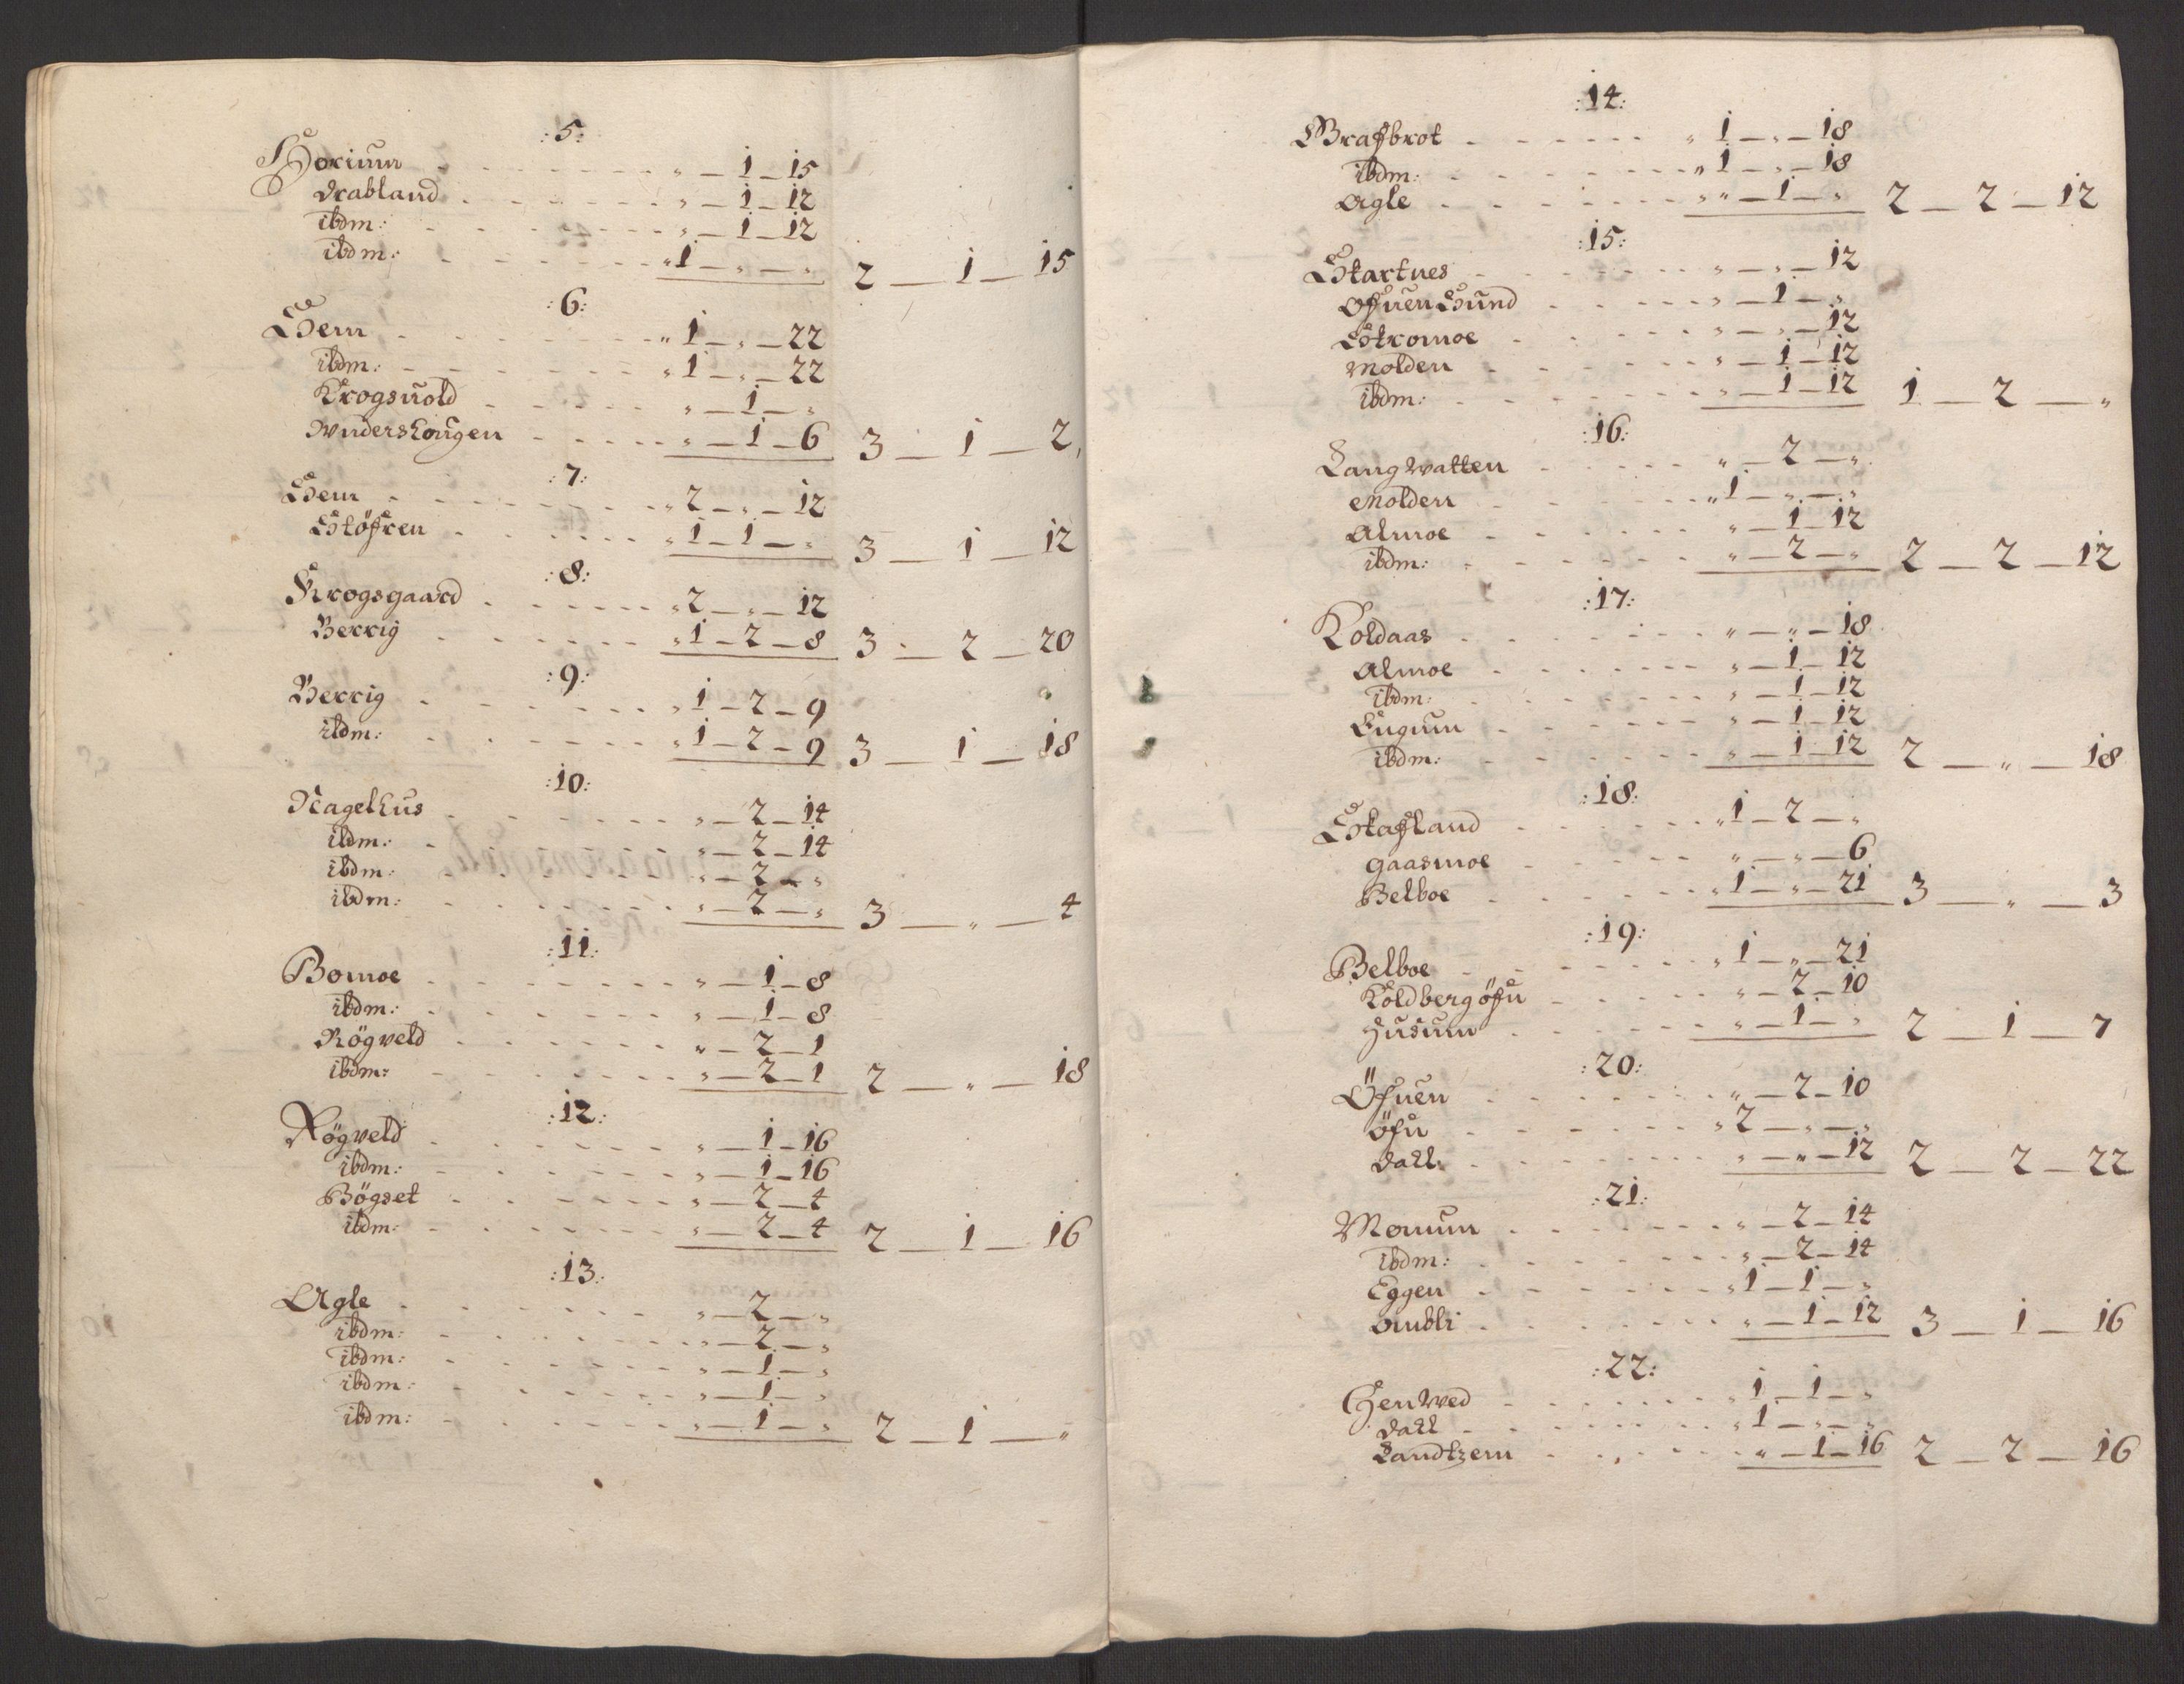 :5:
Horium - - - - - - - „ — 1 — 15
Drabland - - - - - - „ — 1 — 12
ibdm: - - - - - - - „ — 1 — 12
ibdm: - - - - - - - „ 1 — „ — „ 2 — 1 — 15
:6:
Hem - - - - - - - „ 1 — „ — 22
ibdm: - - - - - - - „ 1 — „ — 22
Krogsuold - - - - - „ — 1 — „
Wnderhougen - - - - - „ — 1 — 6 3 — 1 — 2
:7:
Hem - - - - - - - „ 2 — „ — 12
Støfren - - - - - - „ 1 — 1 — „ 3 — 1 — 12
:8:
Krogsgaard - - - - - - „ 2 — „ — 12
Berrig - - - - - - „ 1 — 2 — 8 3 — 2 — 20
:9:
Berrig - - - - - - - „ 1 — 2 — 9
ibdm: - - - - - - - „ 1 — 2 — 9 3 — 1 — 18
:10:
Nagelhus - - - - - - „ — 2 — 14
ibdm: - - - - - - - „ — 2 — 14
ibdm: - - - - - - - „ — 2 — „
ibdm: - - - - - - - „ — 2 — „ 3 — „ — 4
:11:
Bomoe - - - - - - - „ — 1 — 8
ibdm: - - - - - - - „ — 1 — 8
Rögveld - - - - - - „ — 2 — 1
ibdm: - - - - - - - „ — 2 — 1 2 — „ — 18
:12:
Rögveld - - - - - - „ — 1 — 16
ibdm: - - - - - - - „ — 1 — 16
Bögset - - - - - - „ — 2 — 4
ibdm: - - - - - - - „ — 2 — 4 2 — 1 — 16
:13:
Agle - - - - - - - „ — 2 — „
ibdm: - - - - - - - „ — 2 — „
ibdm: - - - - - - - „ — 1 — „
ibdm: - - - - - - - „ — 1 — „
ibdm: - - - - - - - „ — 1 — „ 2 — 1 — „
:14:
Brafbrot - - - - - - „ 1 — „ — 18
ibdm: - - - - - - - „ 1 — „ — 18
Agle - - - - - - - „ „ — 1 — „ 2 — 2 — 12
:15:
Startnes - - - - - - „ — „ — 12
Ofuen Sund - - - - - „ — 1 — „
Stromoe - - - - - - „ — „ — 12
Molden - - - - - - „ — 1 — 12
ibdm: - - - - - - - „ — 1 — 12 1 — 2 — „
:16:
Langwatten - - - - - „ — 2 — „
Molden - - - - - - „ 1 — „ — „
Almoe - - - - - - - „ — 1 — 12
ibdm: - - - - - - - „ — 2 — „ 2 — 2 — 12
:17:
Koldaas - - - - - - „ — „ — 18
Almoe - - - - - - - „ — 1 — 12
ibdm: - - - - - - - „ — 1 — 12
Lugum - - - - - - - „ — 1 — 12
ibdm: - - - - - - - „ — 1 — 12 2 — „ — 18
:18:
Stafland - - - - - - „ 1 — 2 — „
Gaasmoe - - - - - - „ — „ — 6
Belboe - - - - - - „ 1 — „ — 21 3 — „ — 3
:19:
Belboe - - - - - - „ 1 — „ — 21
Koldberg öfu - - - - - „ — 2 — 10
Husum - - - - - - - „ — 1 — „ 2 — 1 — 7
:20:
Öfuen - - - - - - - „ — 2 — 10
öfu - - - - - - - „ 2 — „ — „
Dall - - - - - - - „ — „ — 12 2 — 2 — 22
:21:
Momum - - - - - - „ — 2 — 14
ibdm: - - - - - - - „ — 2 — 14
Eggen - - - - - - - „ 1 — 1 — „
Ombli - - - - - - - „ — 1 — 12 3 — 1 — 16
:22:
Henwed - - - - - - 1 — 1 — „
Dall - - - - - - - „ 1 — „ — „
Landtzem - - - - - „ — 1 — 16 2 — 2 — 16